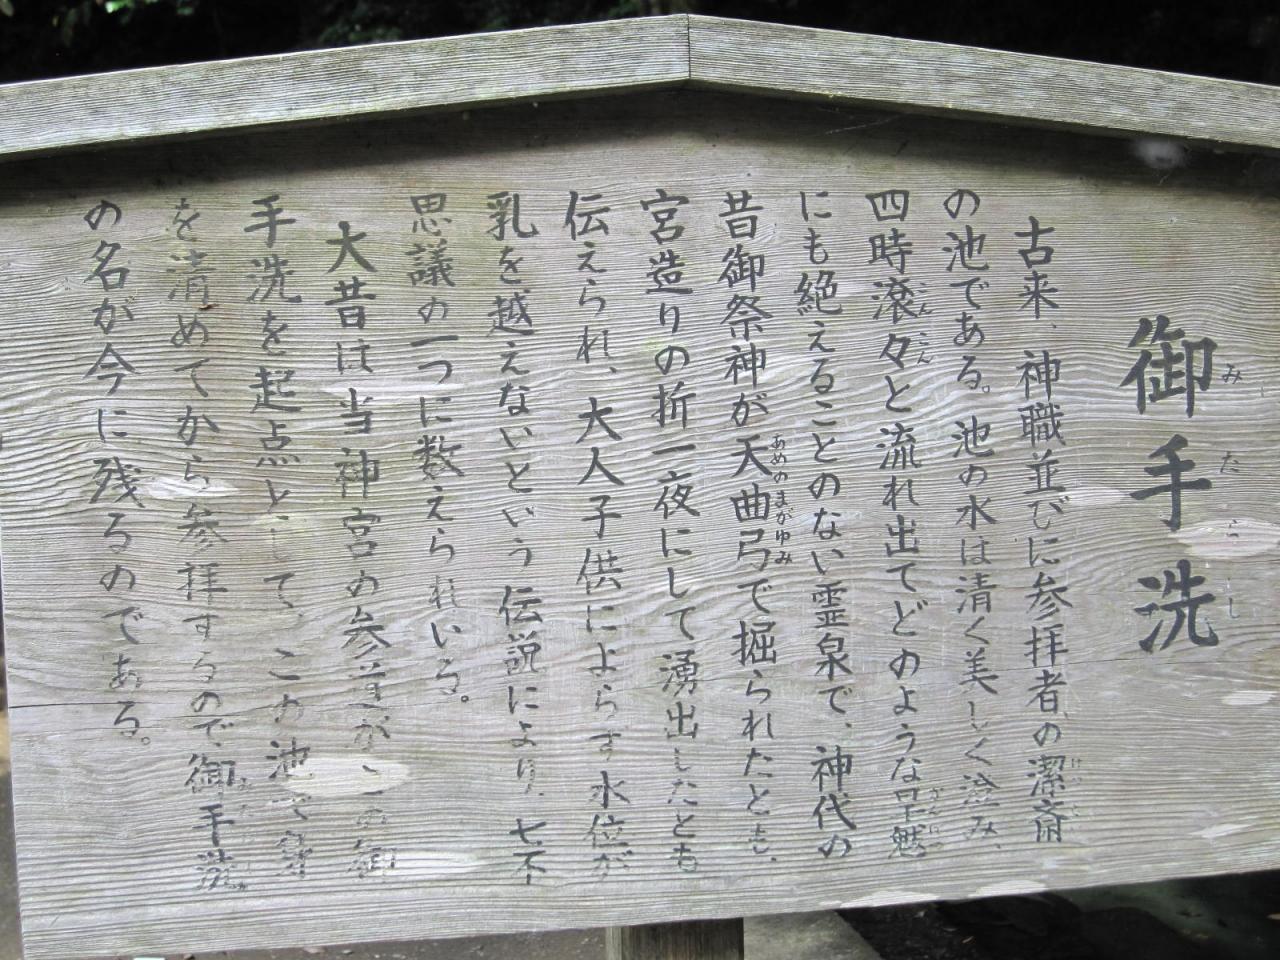 御手洗
みたらし
古来、神職並びに参拝者の潔斎
の池である。池の水は清く美しく澄み、
四時滾々と流れ出てどのような旱魃
こんこん
にも絶えることのない霊泉で、神代の
昔御祭神が天曲弓で掘られたとも、
あめのまがゆみ
宮造りの折一夜にして湧出したとも
伝えられ、大人子供によらす水位が
乳を越えないという伝説により、七不
思議の一つに数えられいる。
大昔は当神宮の参道がこの御
手洗を起点として、この池で身
を清めてから参拝するので、御手洗
の名が今に残るのである。